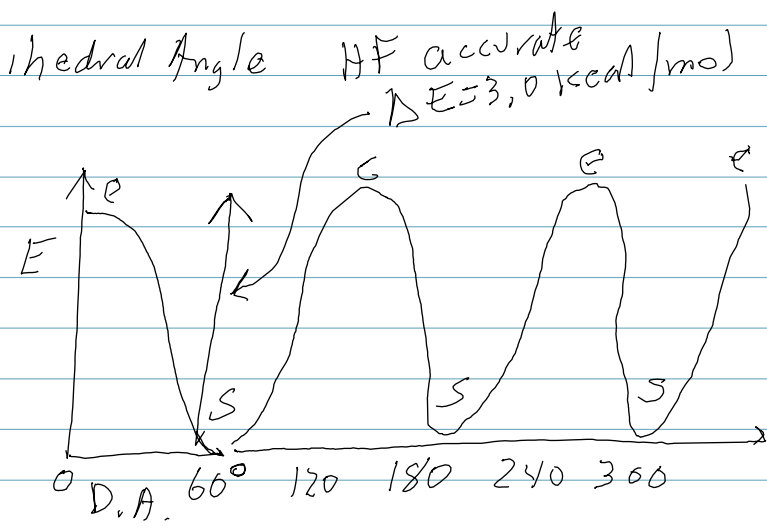 ihedral Angle HF accurate
ΔE=3,0 kcal/mol
e e e e
E
S S S
0 60° 120 180 240 300
D.A.